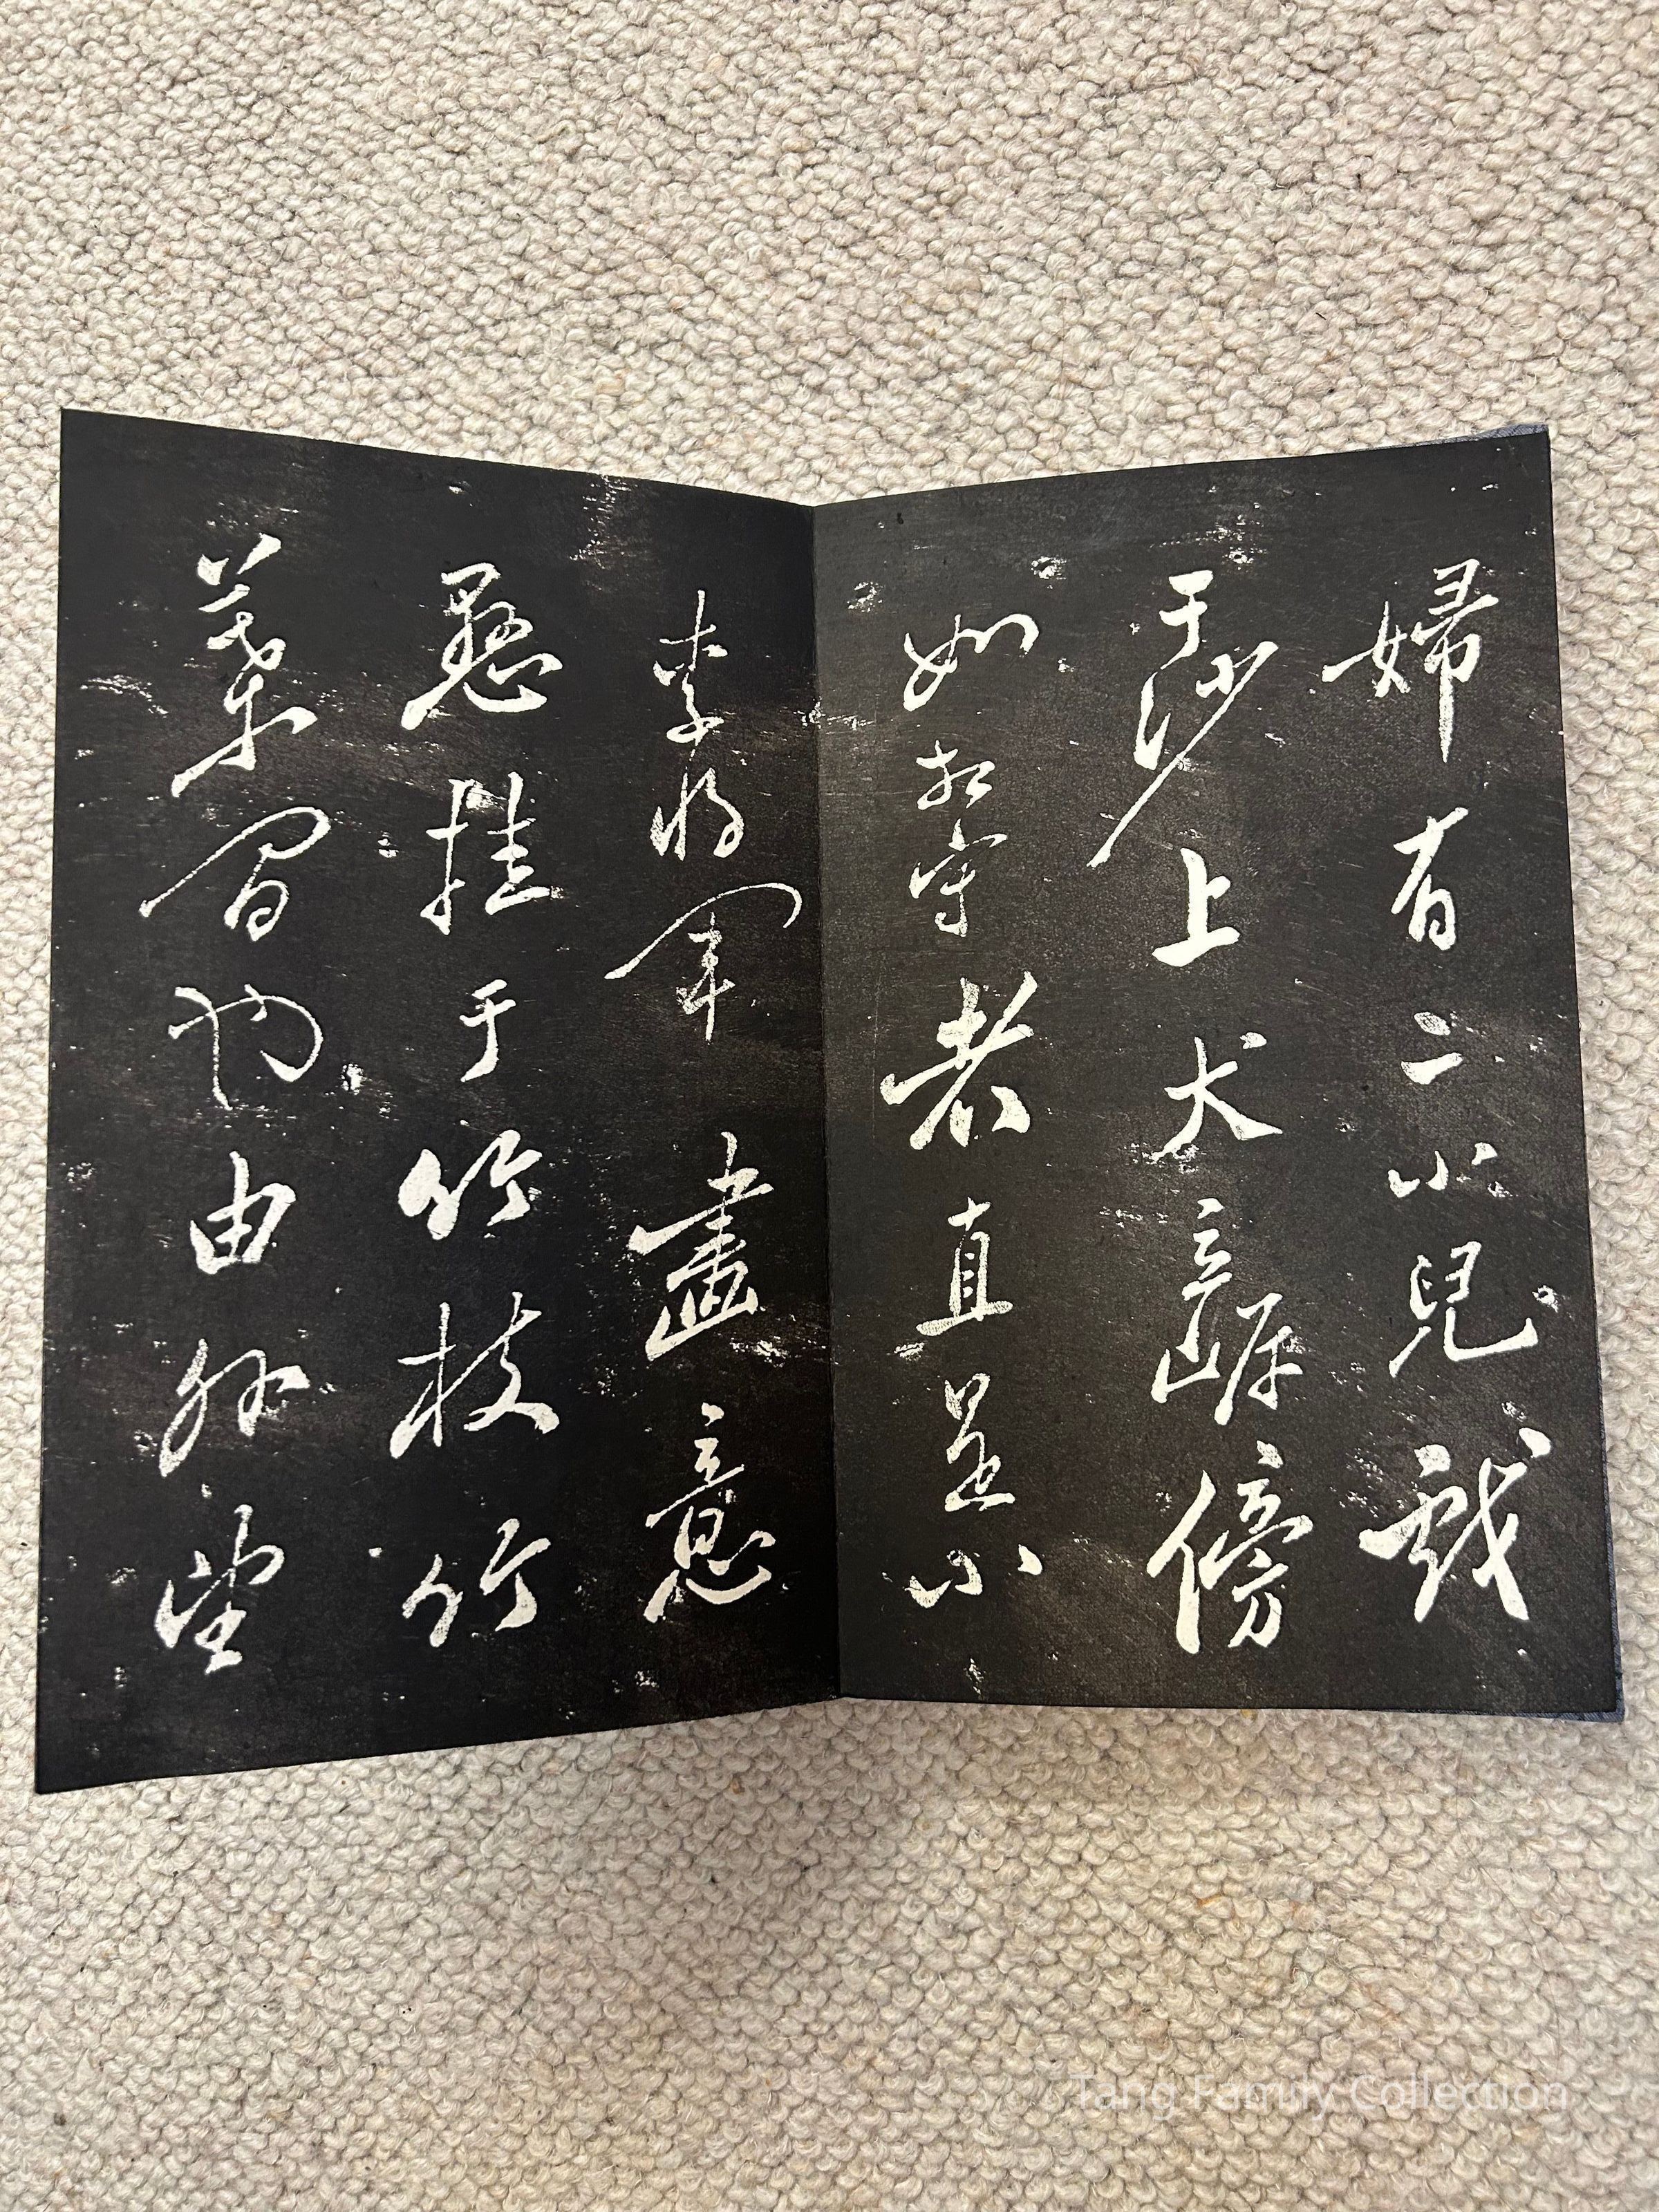 婦有二小兒戲
于沙上犬傍
如相守者直是小
李將軍畫意
懸挂于竹枝竹
葉間也由外望
Tang Family Collection